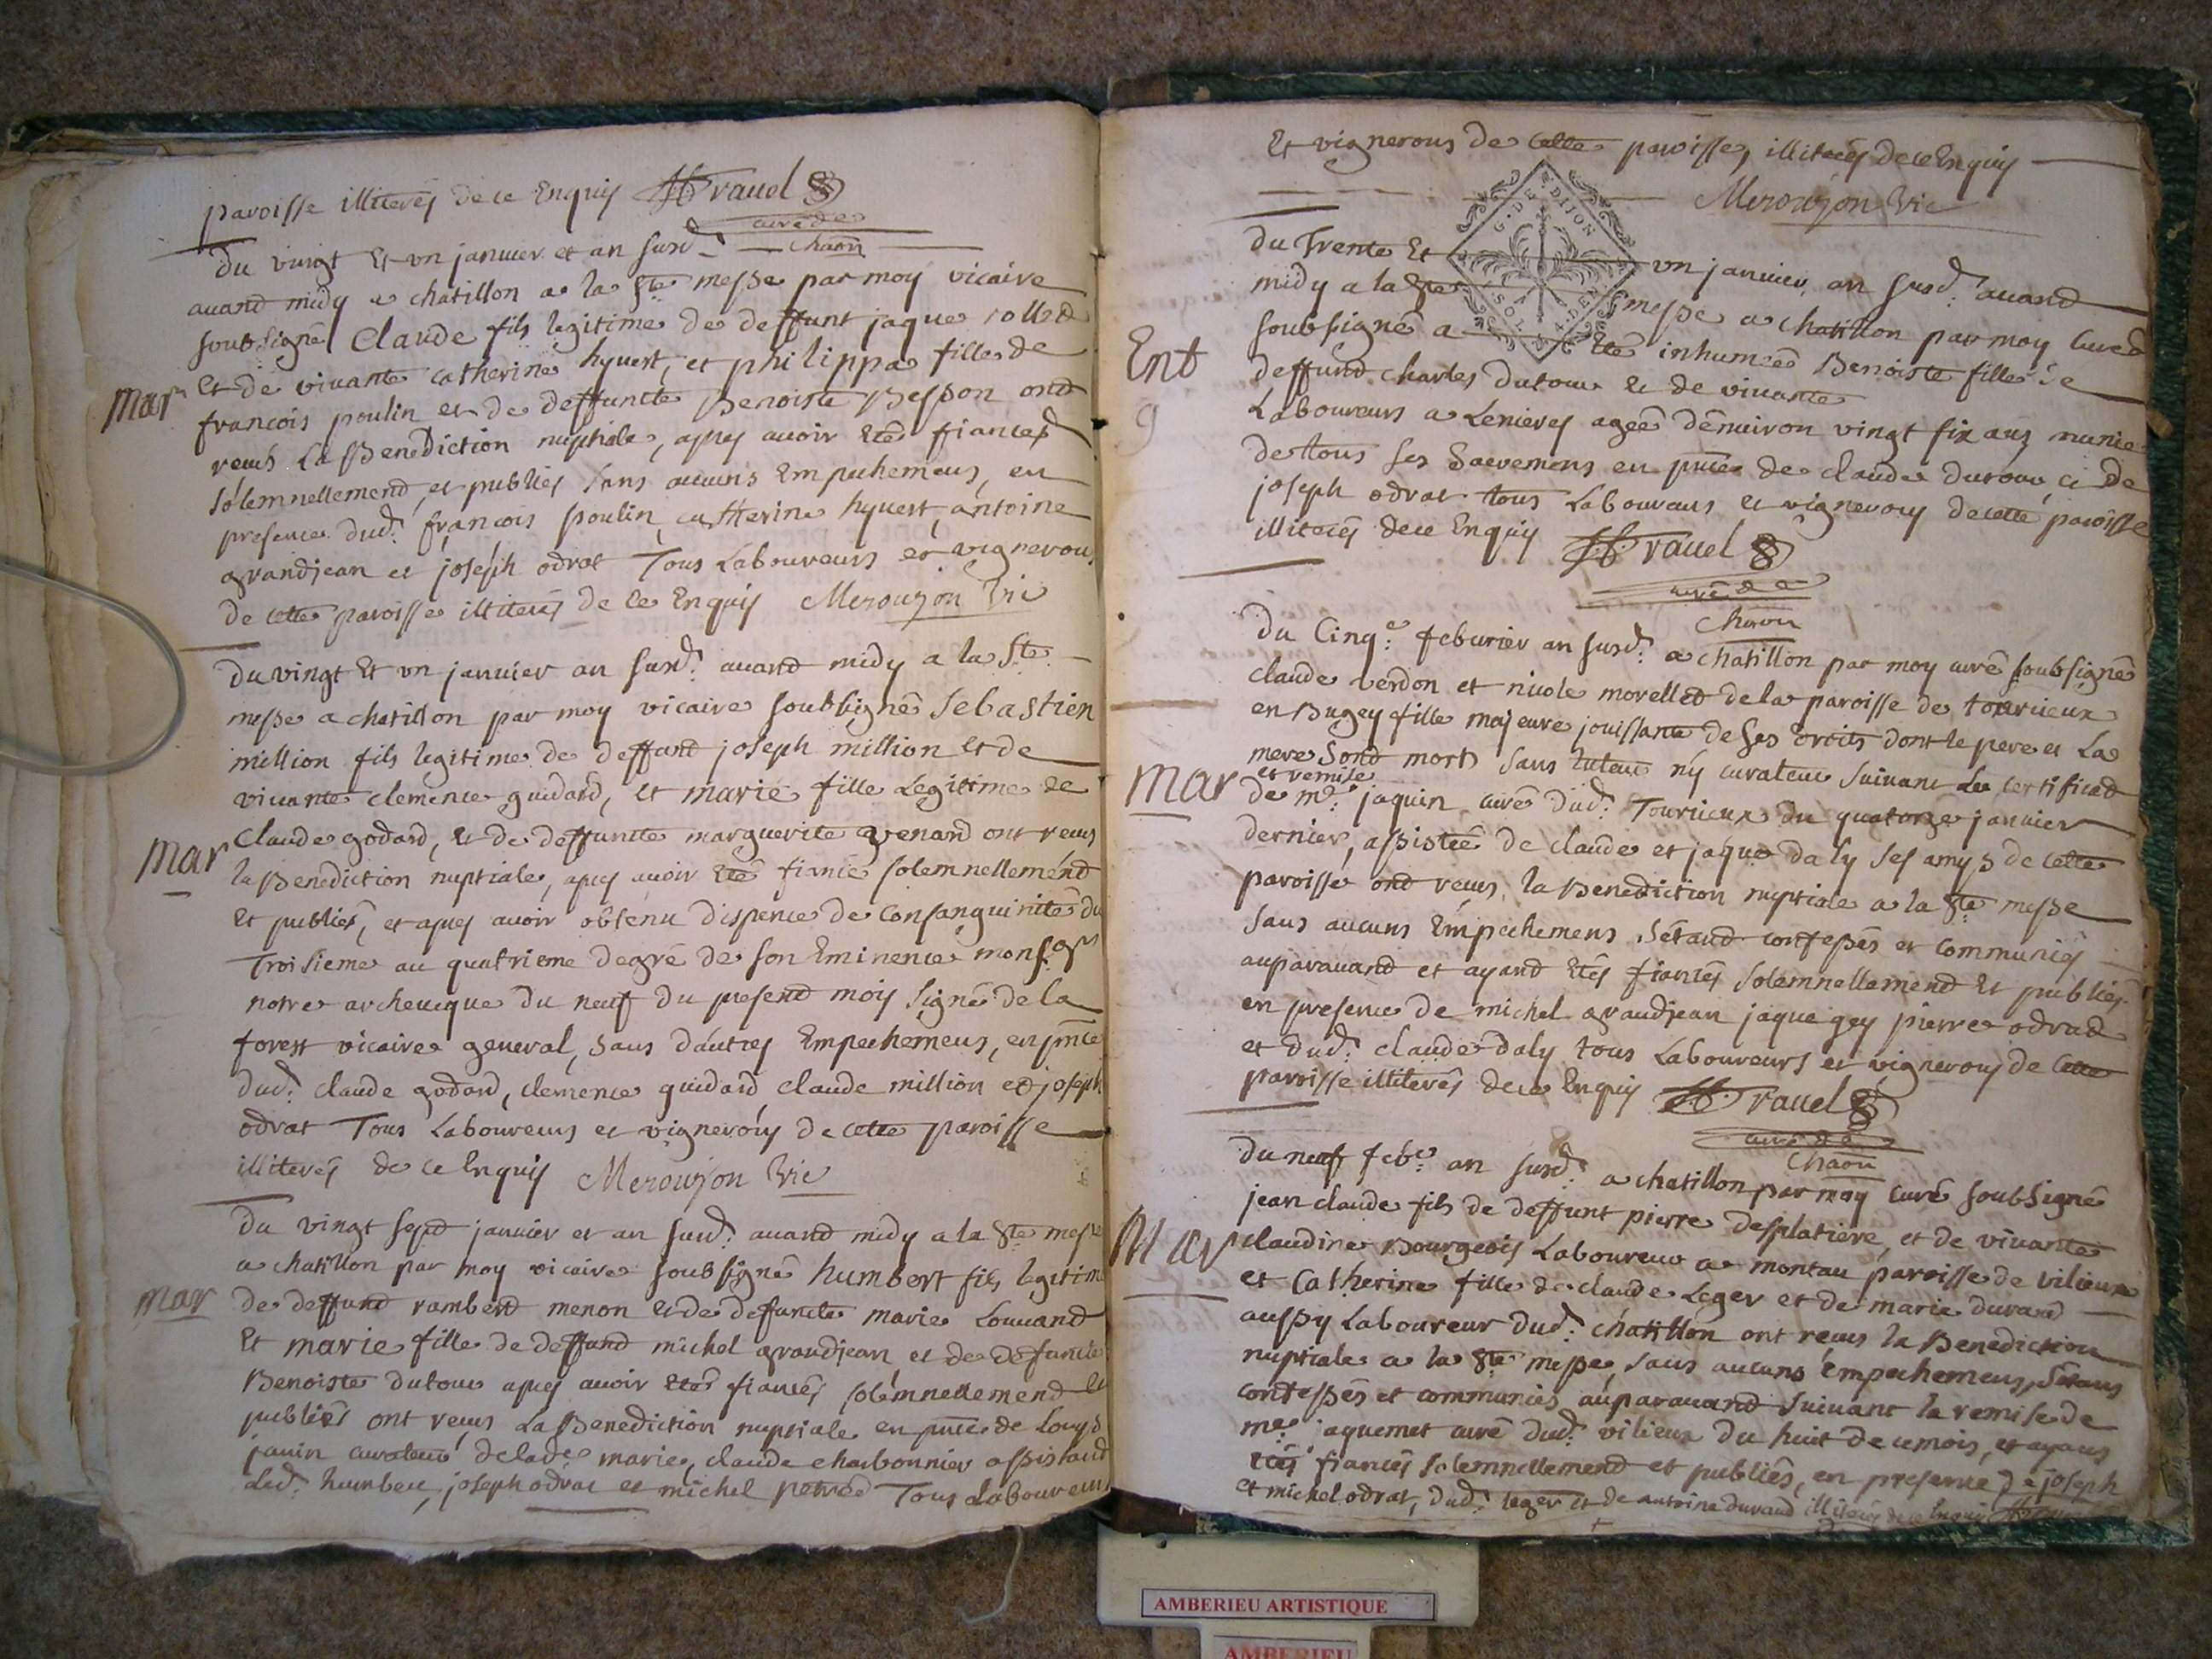 paroisse illiterés de ce Enquis Ravel
curé de
chaon
Du vingt Et un janvier et an susd:
avand midy a chatillon a la Ste messe par moy vicaire
soubsigné Claude fils legitime de deffunt jaque rollet
Mar
Et de vivante catherine hyvert, et philippa fille de
francois poulin et de deffuncte Benoiste Besson ond
reçus La Benediction nuptiale, apres avoir Eté fiancés
solemnellemend et publiés sans aucuns Empechemens, en
presence dud: françois poulin catherine hyvert, antoine
grandjean et joseph odrat Tous Laboureurs et vignerons
de cette paroisse illiterés de ce Enquis Merouzon Vic
Du vingt Et un janvier an susd: avand midy a la Ste
messe a chatillon par moy vicaire soubsigné sebastien
million fils legitime de deffand joseph million Et de
vivante clemence guidard, Et marie fille Legitime de
Mar
Claude godard, Et de deffuncte marguerite venard ont reçus
la Benediction nuptiale, apres avoir Eté fiancé solemnellemend
Et publiés, et apres avoir obtenu dispence de Consanguinité du
Troisieme au quatrieme degré de son Eminence monsgr
notre archeveque du neuf du presend mois signé de la
forest vicaire general, sans d'autres Empechemens, en pnce
dud: claude godard, clemence guidard claude million et joseph
odrat Tous Laboureurs et vignerons de cette paroisse
illiterés de ce Enquis Merouzon Vic
Du vingt sept janvier et an susd: avand midy a la Ste messe
a chatillon par moy vicaire soubsigné humbert fils legitime
Mar
de deffund rambert menon Et de defuncte marie Louvand
Et marie fille de deffund michel grandjean et de defuncte
Benoiste dutour apres avoir Eté fiancés solemnellemend Et
publiés ont reçus La Benediction nuptiale en pnce de Louys
janin curateur de lade marie, claude charbonnier assistand
Led: humbert, joseph odrat et michel perrod Tous Laboureurs
Et vignerons de Cette paroisse, illiterés de ce Enquis
Merouzon Vic
G. DE DIJON
SOL. 4. DEN
Du Trente Et un janvier, an susd: avand
midy a la Ste messe a chatillon par moy Curé
Ent
soubsigné a Eté inhumée Benoiste fille de
deffund charles dutour Et de vivante
9
Laboureurs a Lenieres agée d'environ vingt six ans munie
de tous ses Sacremens en pnce de claude dutour, et de
joseph odrat tous Laboureurs et vignerons de cette paroisse
illiterés de ce Enquis Ravel
curé de
chaon
Du Cinqe feburier an susd: a chatillon par moy curé soubsigné
claude verdon et nicole morelled de la paroisse de tourcieux
en Bugey fille majeure jouissante de ses droits dont le pere et La
mere Sond morts sans tuteur ny curateur suivant Le certificad
et remise
Mar
de mre jaquin curé dud: Tourcieux du quatorze janvier
dernier, assistée de claude et jaque daly ses amys de cette
paroisse ond reçus la Benediction nuptiale a la Ste messe
sans aucuns Empechemens, s'étand confessés et communiés
auparavand et ayand Etés fiancés solemnellemend Et publiés
en presence de michel grandjean jaque gey pierre odrad
et dud: claude daly tous Laboureurs et vignerons de Cette
paroisse illiterés de ce Enquis Ravel
curé de
chaon
Du neuf febr an susd: a chatillon par moy Curé soubsigné
jean claude fils de deffunt pierre desplatiere, et de vivante
Mar
claudine Bourgeois Laboureur a montau paroisse de vilieux
et Catherine fille de claude Leger et de marie durand
aussy Laboureur dud: chatillon ont reçus la Benediction
nuptiale a la Ste messe, sans aucuns empechemens, s'étans
confessés et communiés auparavand suivant la remise de
mre jaquemet curé dud: vilieux du huit de ce mois, et ayans
Etés fiancés solemnellemend et publiés, en presence de joseph
et michel odrat, dud: leger Et de antoine durand illiterés de ce Enquis
AMBERIEU ARTISTIQUE
AMBERIEU